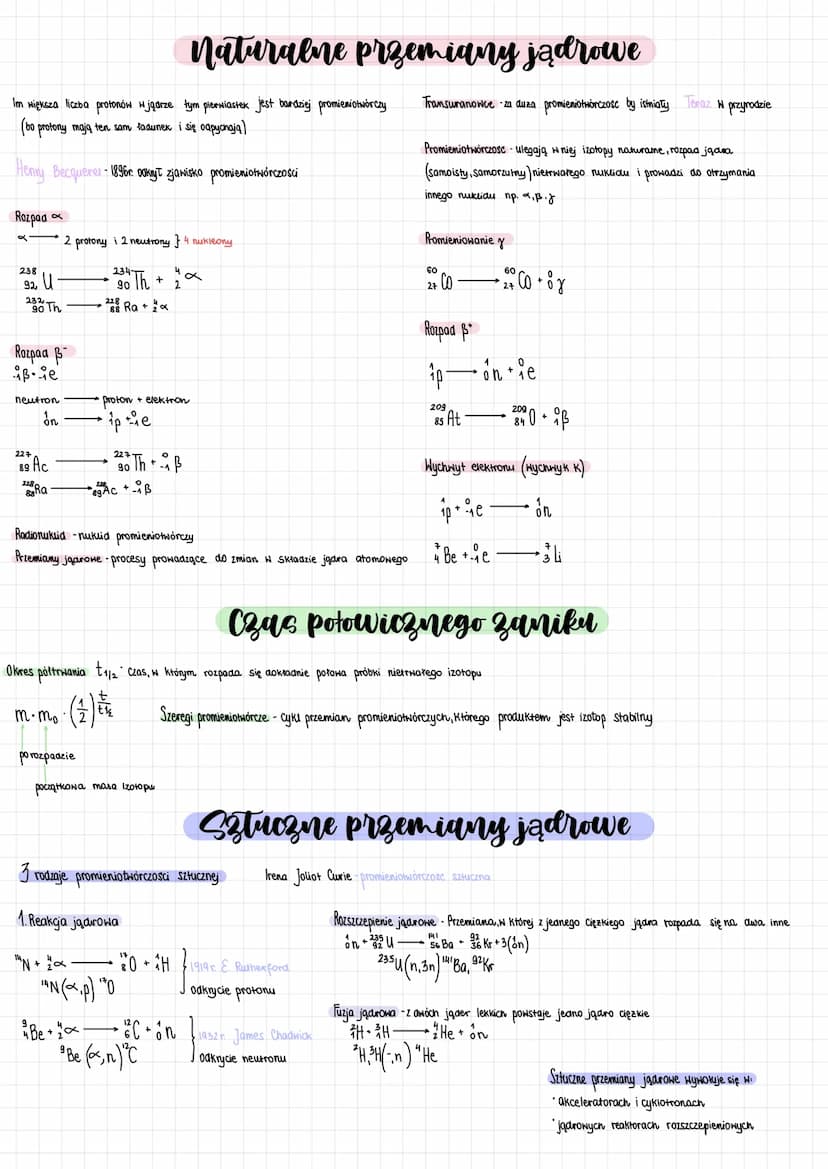 Naturalne przemiany jądrowe
Im większa liczba protonów w jądrze tym pierwiastek jest bardziej promieniotwórczy
(bo protony mają ten sam ładunek i się odpychają)
Henry Becquerel - 1896r. odkrył zjawisko promieniotwórczości
Rozpad α
α ⟶ 2 protony i 2 neutrony } 4 nukleony
²³⁸₉₂U ⟶ ²³⁴₉₀Th + ⁴₂α
²³²₉₀Th ⟶ ²²⁸₈₈Ra + ⁴₂α
Rozpad β⁻
⁰₋₁β = ⁰₋₁e
neutron ⟶ proton + elektron
¹₀n ⟶ ¹₁p + ⁰₋₁e
²²⁷₈₉Ac ⟶ ²²⁷₉₀Th + ⁰₋₁β
²²⁸₈₈Ra ⟶ ²²⁸₈₉Ac + ⁰₋₁β
Radionuklid - nuklid promieniotwórczy
Przemiany jądrowe - procesy prowadzące do zmian w składzie jądra atomowego
Transuranowce - za duża promieniotwórczość by istniały Teraz w przyrodzie
Promieniotwórczość - ulegają w niej izotopy naturalne, rozpad jądra
(samoisty, samorzutny) nietrwałego nuklidu i prowadzi do otrzymania
innego nuklidu np. α, β, γ
Promieniowanie γ
⁶⁰₂₇Co ⟶ ⁶⁰₂₇Co + ⁰₀γ
Rozpad β⁺
¹₁p ⟶ ¹₀n + ⁰₁e
²⁰⁹₈₅At ⟶ ²⁰⁹₈₄O + ⁰₁β
Wychwyt elektronu (wychwyt K)
¹₁p + ⁰₋₁e ⟶ ¹₀n
⁷₄Be + ⁰₋₁e ⟶ ⁷₃Li
Czas połowicznego zaniku
Okres półtrwania t₁/₂ - czas, w którym rozpada się dokładnie połowa próbki nietrwałego izotopu
m = m₀ · (1/2)^(t/t½)
Szeregi promieniotwórcze - cykl przemian promieniotwórczych, którego produktem jest izotop stabilny
po rozpadzie
początkowa masa izotopu
Sztuczne przemiany jądrowe
3 rodzaje promieniotwórczości sztucznej
Irena Joliot Curie - promieniotwórczość sztuczna
1. Reakcja jądrowa
¹⁴N + ⁴₂α ⟶ ¹⁷₈O + ¹₁H } 1919r. E. Rutherford
¹⁴N(α,p) ¹⁷O odkrycie protonu
⁹₄Be + ⁴₂α ⟶ ¹²₆C + ¹₀n } 1932r. James Chadwick
⁹Be (α,n) ¹²C odkrycie neutronu
Rozszczepienie jądrowe - Przemiana, w której z jednego ciężkiego jądra rozpada się na dwa inne
¹₀n + ²³⁵₉₂U ⟶ ¹⁴¹₅₆Ba + ⁹²₃₆Kr + 3(¹₀n)
²³⁵U(n,3n) ¹⁴¹Ba, ⁹²Kr
Fuzja jądrowa - z dwóch jąder lekkich powstaje jedno jądro ciężkie
²₁H + ³₁H ⟶ ⁴₂He + ¹₀n
²H, ³H(-,n) ⁴He
Sztuczne przemiany jądrowe wywołuje się w:
· akceleratorach i cyklotronach
· jądrowych reaktorach rozszczepieniowych